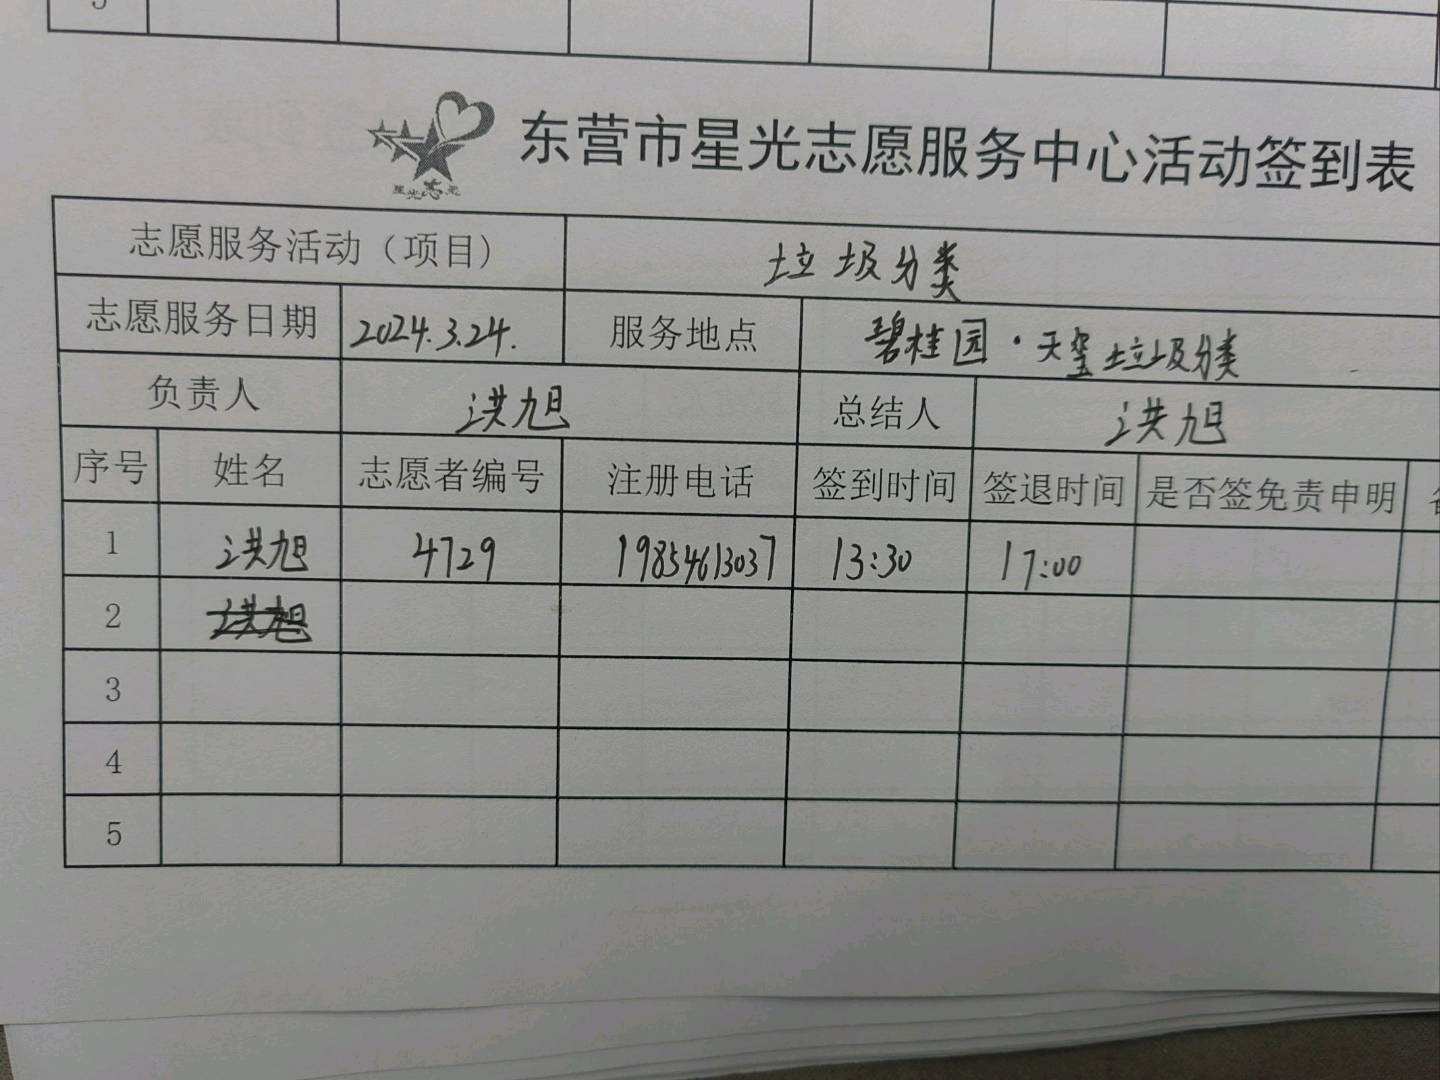 5
东营市星光志愿服务中心活动签到表
星光志愿
志愿服务活动（项目) 垃圾分类
志愿服务日期 2024.3.24. 服务地点 碧桂园·天玺垃圾分类
负责人 洪旭 总结人 洪旭
序号 姓名 志愿者编号 注册电话 签到时间 签退时间 是否签免责申明
1 洪旭 4729 19854613037 13:30 17:00
2 洪旭
3
4
5